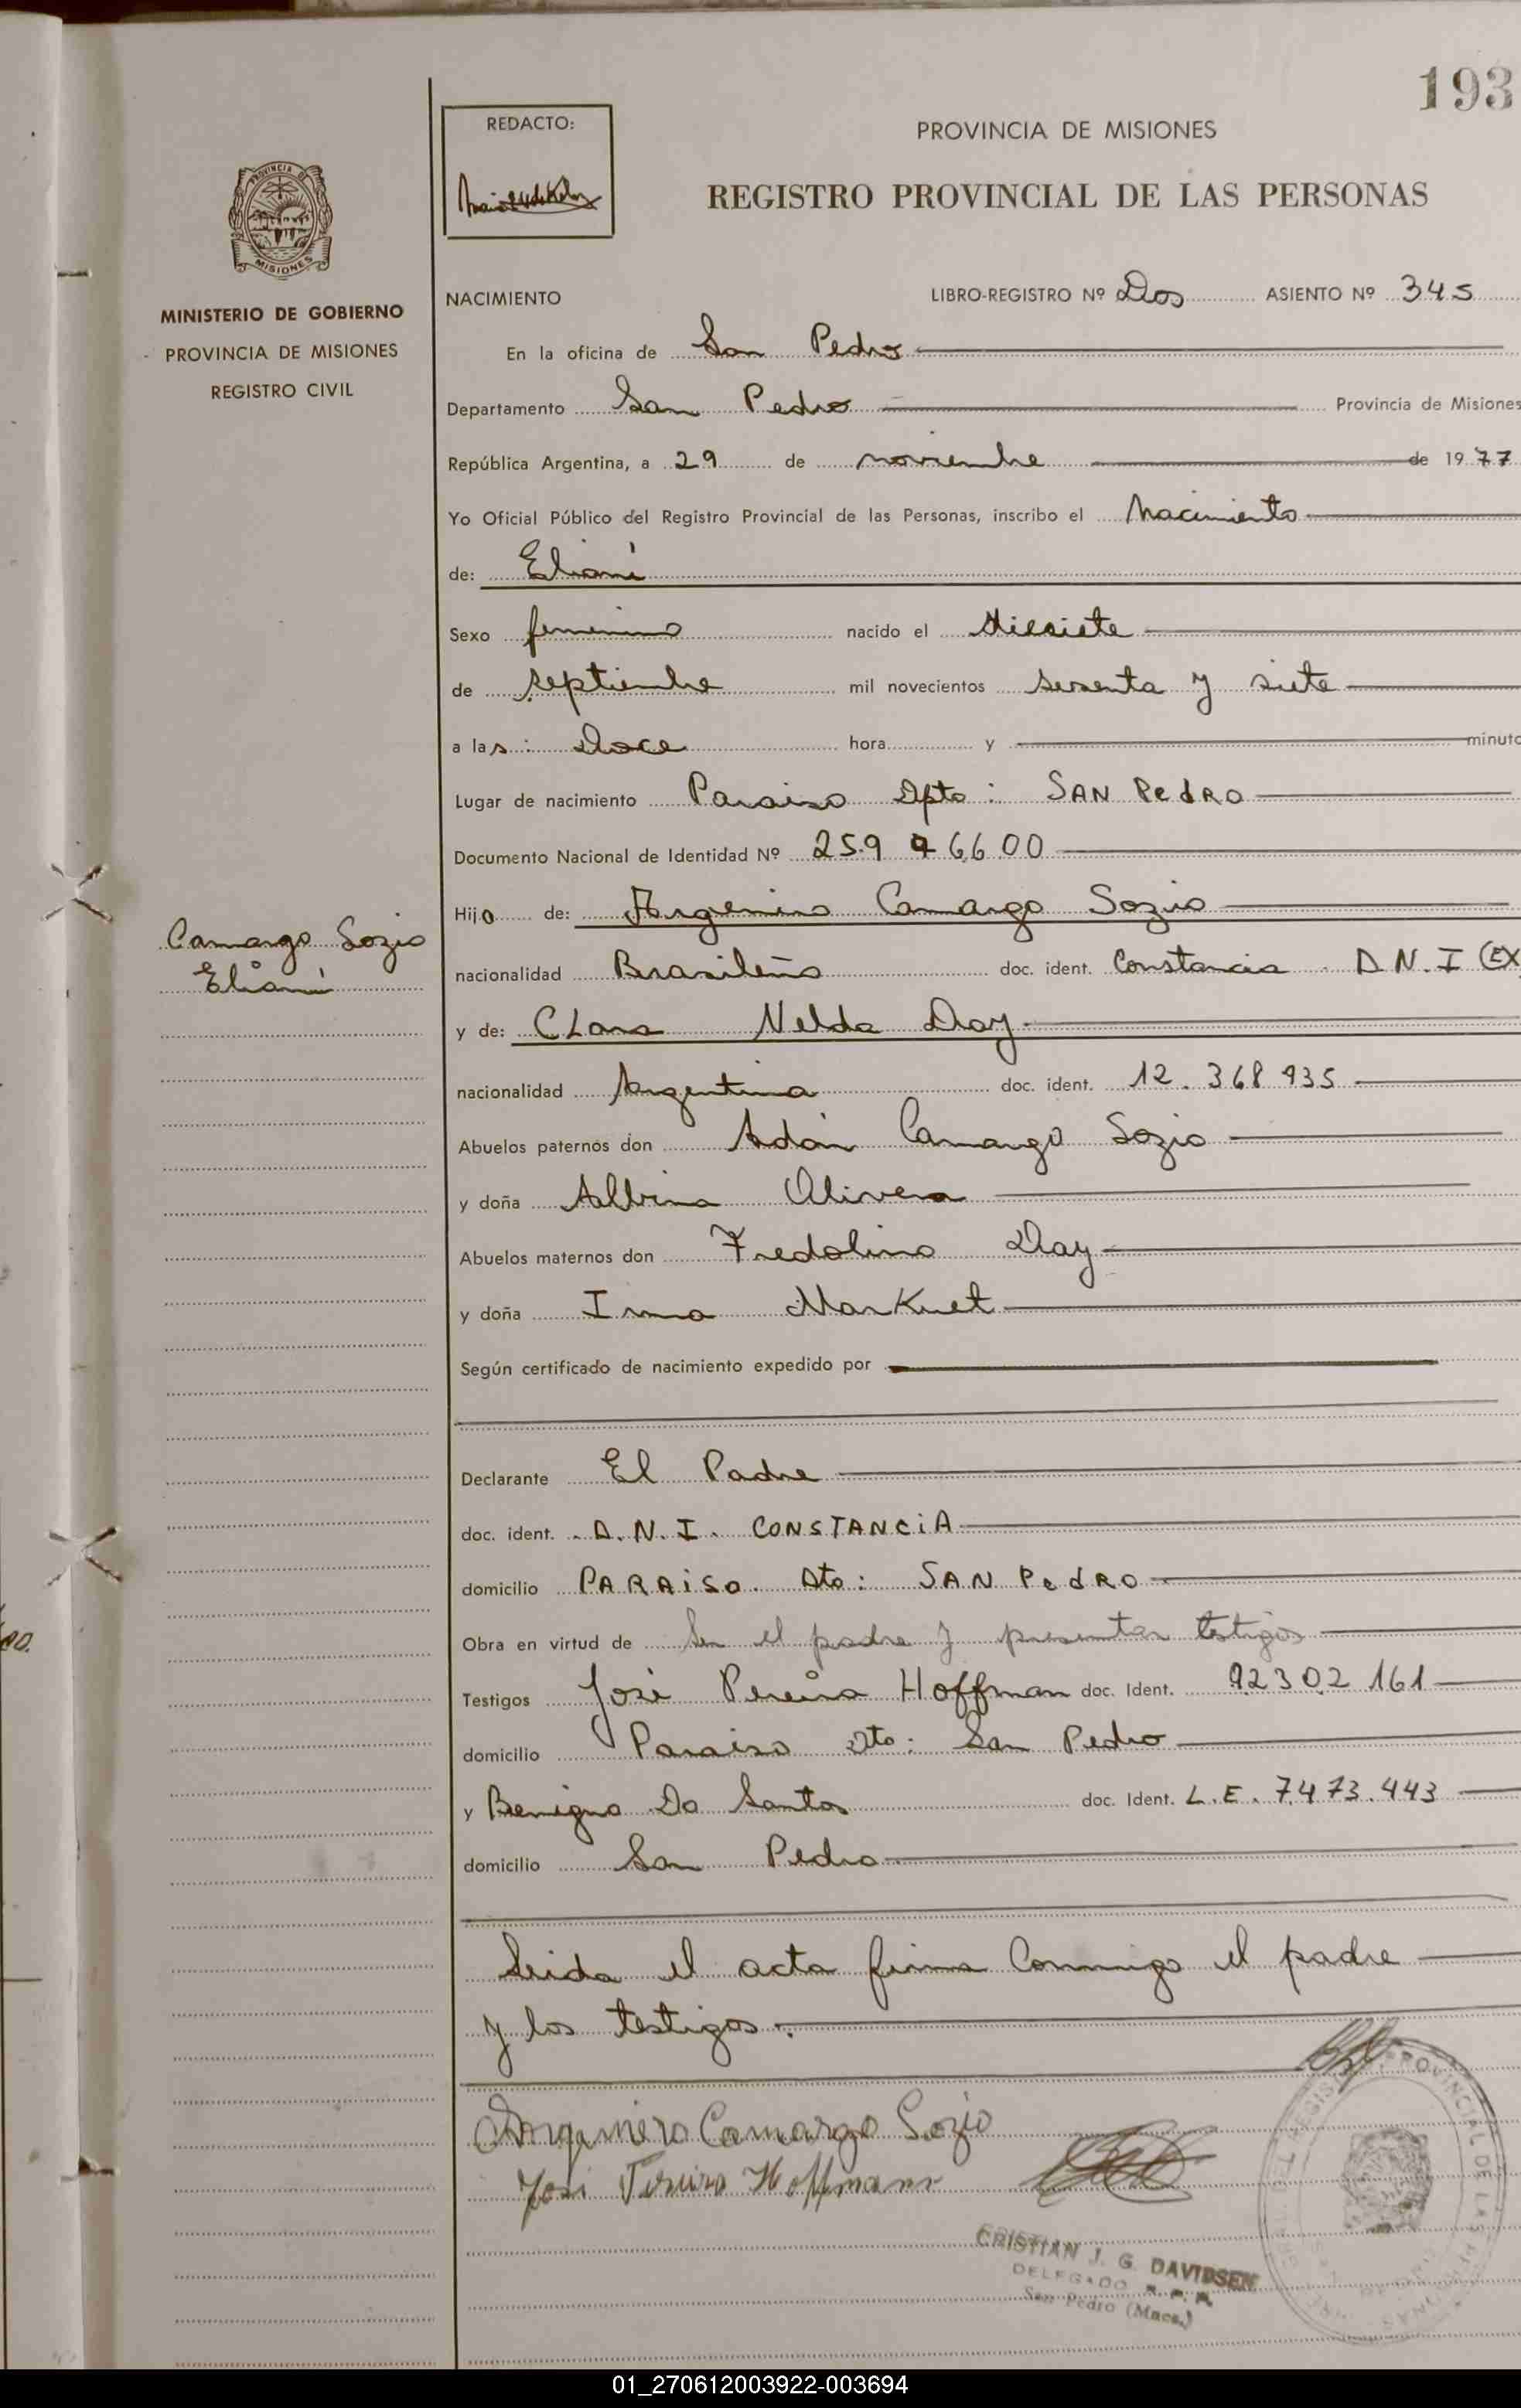 193
REDACTO:
PROVINCIA DE MISIONES
REGISTRO PROVINCIAL DE LAS PERSONAS
PROVINCIA DE MISIONES
MINISTERIO DE GOBIERNO
PROVINCIA DE MISIONES
REGISTRO CIVIL
NACIMIENTO LIBRO-REGISTRO Nº Dos ASIENTO Nº 345
En la oficina de San Pedro
Departamento San Pedro Provincia de Misiones
República Argentina, a 29 de noviembre de 1977
Yo Oficial Público del Registro Provincial de las Personas, inscribo el Nacimiento
de: Eliani
Sexo femenino nacido el diesiete
de septiembre mil novecientos sesenta y siete
a las: Doce hora y minuto
Lugar de nacimiento Paraiso Dpto: SAN PedRO
Documento Nacional de Identidad Nº 259 96600
Hijo de: Argemiro Camargo Sozio
Camargo Sozio
Eliani
nacionalidad Brasileño doc. ident. Constancia D N.I (EX
y de: CLara Nelda Day
nacionalidad Argentina doc. ident. 12.368 935
Abuelos paternos don Adán Camargo Sozio
y doña Albina Olivera
Abuelos maternos don Fredolino Day
y doña Irma Markuet
Según certificado de nacimiento expedido por
Declarante El Padre
doc. ident. D.N.I. CONSTANCIA
domicilio PARAISO. Dto: SAN PedRO
Obra en virtud de Ser el padre y presentar testigos
Testigos José Pereira Hoffman doc. Ident. 92302 161
domicilio Paraiso Dto: San Pedro
y Benigno Do Santos doc. Ident. L.E. 7.473.443
domicilio San Pedro
Leida el acta firma Conmigo el padre
y los testigos.
Argemiro Camargo Sozio
José Pereira Hoffmann
CRISTIAN J. G. DAVIDSEN
DELEGADO R. P. P.
San Pedro (Mnes.)
01_270612003922-003694